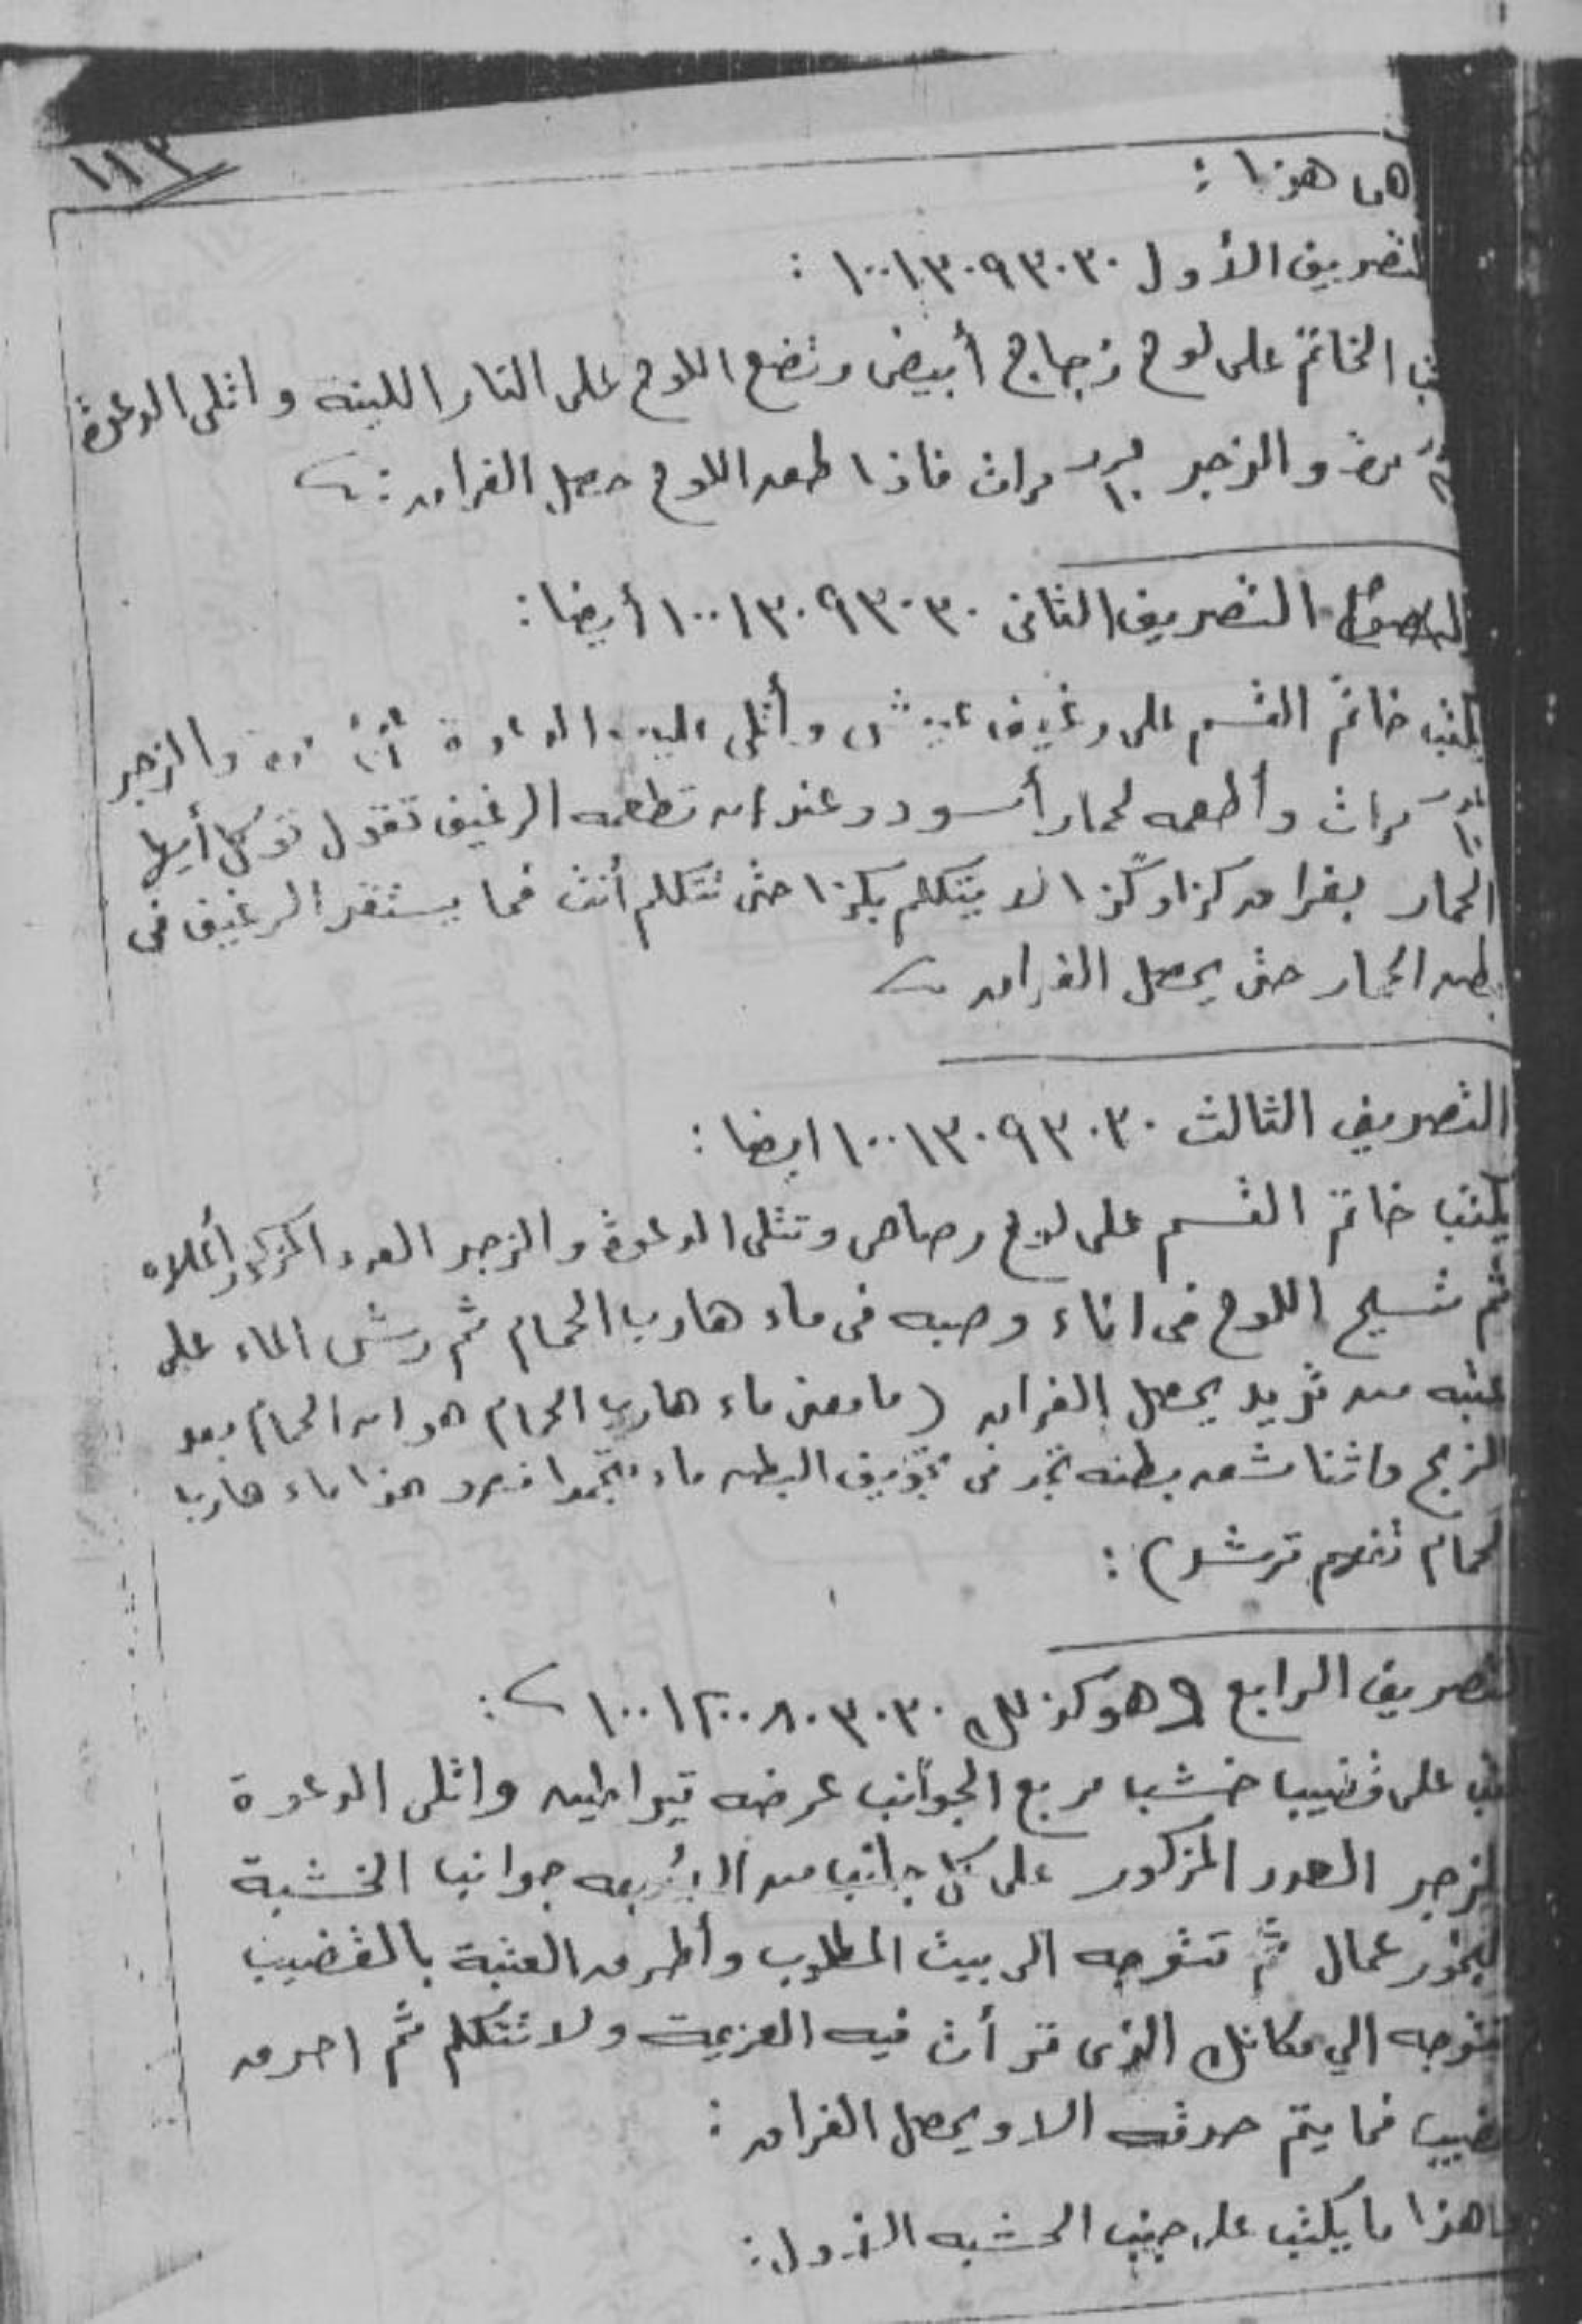 ١١٣
هذا :
التصريف الأول ١٠٠١٣٠٩٣٠٣٠ :
الخاتم على لوح زجاج أبيض وتضع اللوح على النار اللينه واتلى الدعوة
مرة والزجر مرات فاذا طعد اللوح حصل الفراق :
التصريف الثانى ١٠٠١٣٠٩٣٠٣٠ أيضا :
يكتب خاتم القسم على رغيف عيش وأتلى عليه الدعوة والزجر
مرات وأطعمه لحمار أسود وعند ان تطعمه الرغيف تقول توكل أيها
الحمار بفراق كذا وكذا لا يتكلم بكذا حتى تتكلم أنت فما يستقر الرغيف فى
بطن الحمار حتى يحصل الفراق
التصريف الثالث ١٠٠١٣٠٩٣٠٣٠ ايضا :
يكتب خاتم القسم على لوح رصاص وتتلى الدعوة والزجر العدد المذكور أعلاه
ثم تسيح اللوح فى اناء وصبه فى ماء هارب الحمام ثم رش الماء على
عتبه من تريد يحصل الفراق (ما معنى ماء هارب الحمام هو ان الحمام بعد
الذبح واثنا شق بطنه تجد فى تجويف البطن ماء هذا ماء هارب
الحمام ترشد) :
التصريف الرابع وهو كذلك ١٠٠١٢٠٠٨٠٣٠٣٠ :
على قضيب خشب مربع الجوانب عرضه قيراطين واتلى الدعوة
الزجر العدد المذكور على كل جانب من الأربعه جوانب الخشبة
البخور عمال ثم تتوجه الى بيت المطلوب وأطرق العتبة بالقضيب
تتوجه الي مكانك الذى قرأت فيه العزيمة ولا تتكلم ثم احرق
القضيب فما يتم حرقه الا ويحصل الفراق :
هذا ما يكتب على جنب الخشبه الأول :